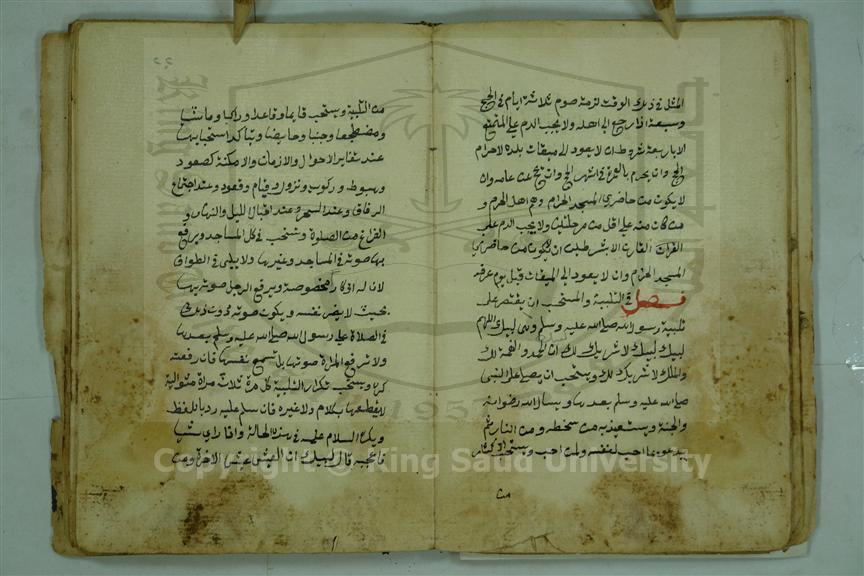 المثل في ذلك الوقت لزمه صوم ثلاثة ايام في الحج
وسبعة اذا رجع الى اهله ولا يجب الدم على المتمتع
الا باربعة شروط ان لا يعود الى ميقات بلده لاحرام
الحج وان يحرم بالعمرة في اشهر الحج وان يحج من عامه وان
لا يكون من حاضري المسجد الحرام وهم اهل الحرم و
من كان منه على اقل من مرحلتين ولا يجب الدم على
القران القارن الا بشرطين ان لا يكون من حاضري
المسجد الحرام وان لا يعود الى الميقات قبل يوم عرفة
فصل في التلبية والمستحب ان يقتصر على
تلبية رسول الله صلى الله عليه وسلم وهي لبيك اللهم
لبيك لبيك لا شريك لك ان الحمد والنعمة لك
والملك لا شريك لك ويستحب ان يصلي على النبي
صلى الله عليه وسلم بعدها ويسأل الله رضوانه
والجنة ويستعيذ به من سخطه ومن النار ثم
يدعو بما احب لنفسه ولمن احب ويستحب الاكثار
من
من التلبية ويستحب قايما وقاعدا وراكبا وماشيا
ومضطجعا وجنبا وحايضا ويتأكد استحبابها
عند تغاير الاحوال والازمان والامكنة كصعود
وهبوط وركوب ونزول وقيام وقعود وعند اجتماع
الرفاق وعند السحر وعند اقبال الليل والنهار و
الفراغ من الصلوة وتستحب في كل المساجد ويرفع
بها صوته في المساجد وغيرها ولا يلبى في الطواف
لان له اذكارا مخصوصة ويرفع الرجل صوته بها
بحيث لا يضر نفسه ويكون صوته دون ذلك
في الصلاة على رسول الله صلى الله عليه وسلم بعدها
ولا ترفع المراة صوتها بل تسمع نفسها فان رفعته
كره ويستحب تكرار التلبية كل مرة ثلاث مراة متوالية
لا يقطعها بكلام ولا غيره فان سلم عليه رد باللفظ
ويكره السلام عليه في هذه الحالة واذا راى شيئا
فاعجبه قال لبيك ان العيش عيش الاخرة ومن
Copyright © King Saud University
1957